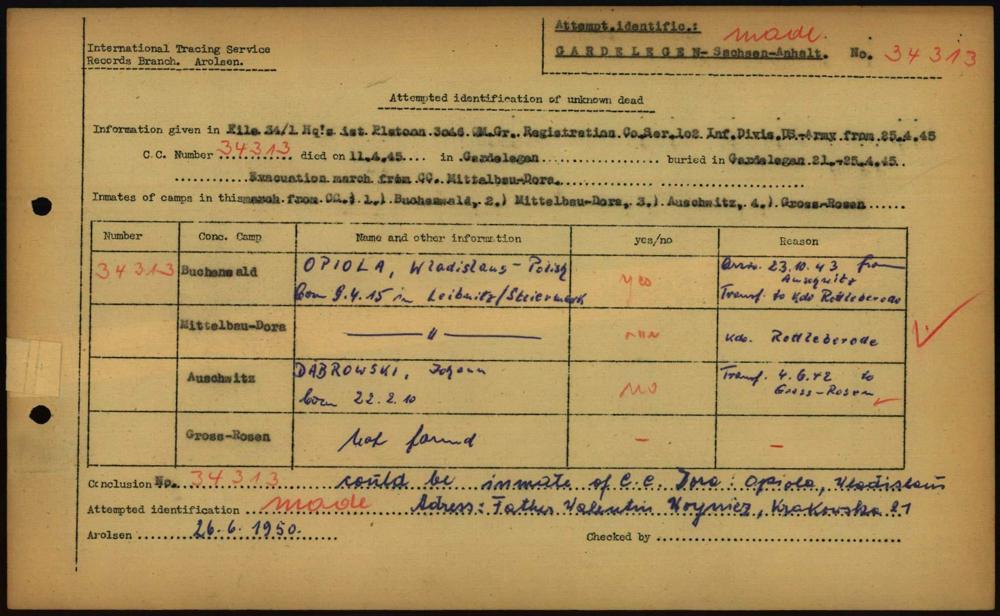 Attempt.identific.: made
GARDELEGEN-Sachsen-Anhalt. No. 34313
International Tracing Service
Records Branch. Arolsen.
Attempted identification of unknown dead
Information given in File 34/1 Hq's 1st Platoon 3046 QM.Gr. Registration Co.Ser.102 Inf.Divis.US-Army from 25.4.45
C.C. Number 34313 died on 11.4.45 in Gardelegen buried in Gardelegen 21.-25.4.45
Evacuation march from CC. Mittelbau-Dora.
Inmates of camps in this march from CC.: 1.) Buchenwald, 2.) Mittelbau-Dora, 3.) Auschwitz, 4.) Gross-Rosen
Number Conc. Camp Name and other information yes/no Reason
34313 Buchenwald OPIOLA, Wladislaus-Polish yes Arriv. 23.10.43 from Auschwitz
born 9.4.15 in Leibnitz/Steiermark Transf. to Kdo Rottleberode
Mittelbau-Dora — " — —""— Kdo. Rottleberode
Auschwitz DABROWSKI, Johann no Transf. 4.6.42 to
born 22.2.10 Gross-Rosen
Gross-Rosen Not found - -
Conclusion No. 34313 could be inmate of C.C. Dora: Opiola, Wladislaus
Attempted identification made Adress: Father Valentin Krakowska 21
Arolsen 26.6.1950. Checked by